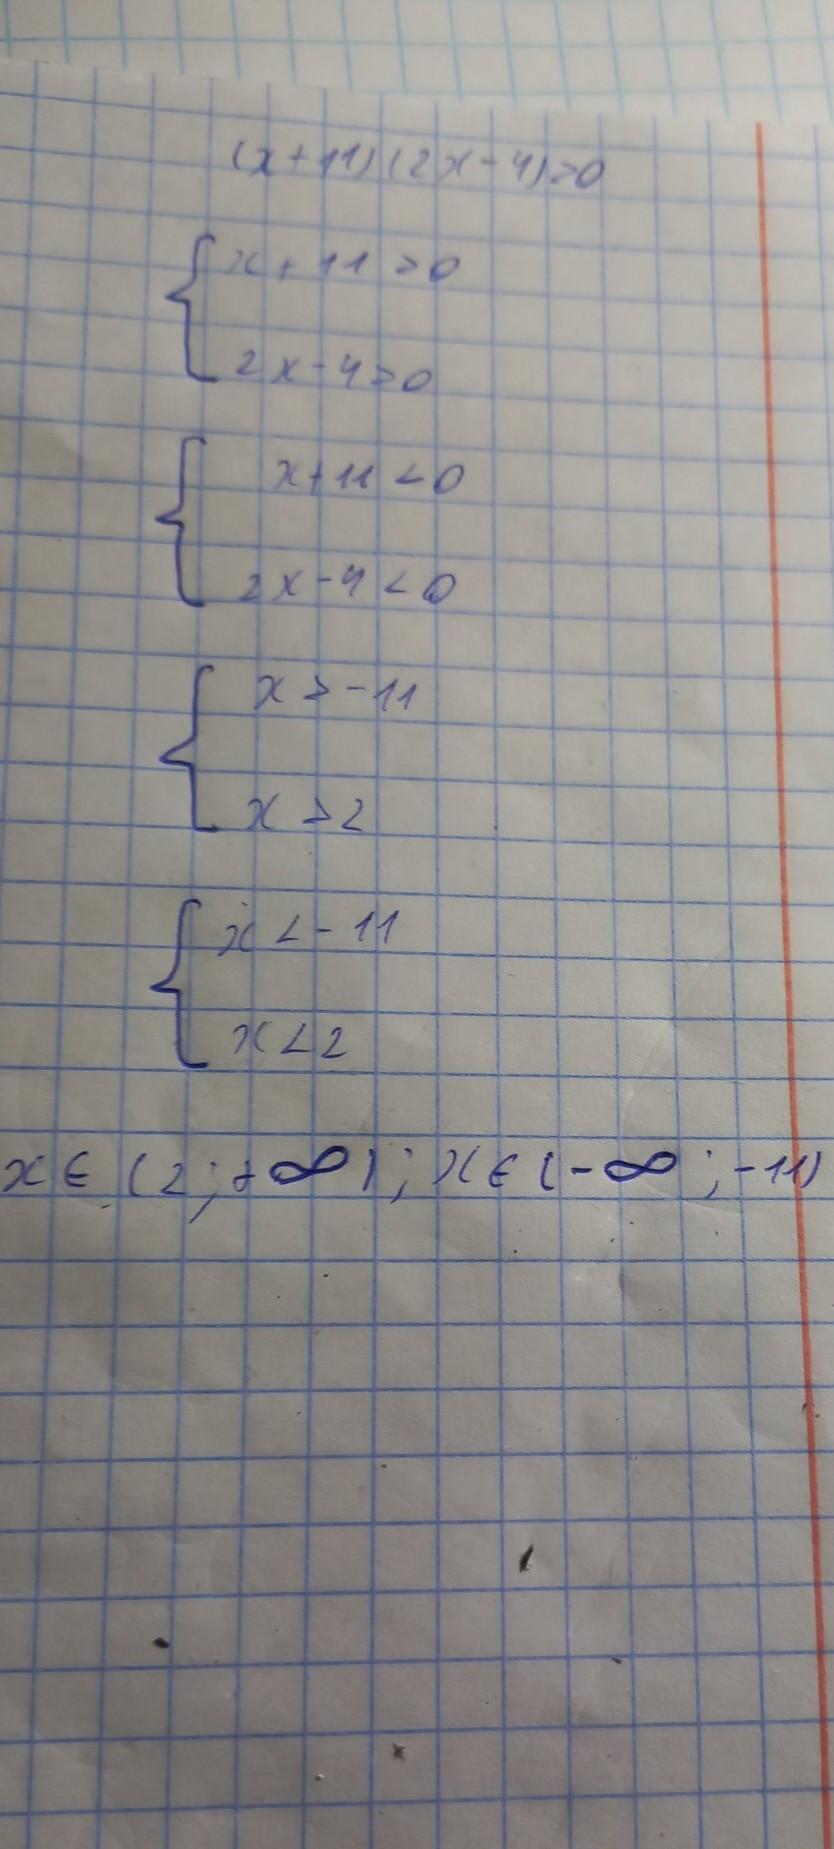 (x+11)(2x-4)>0
{ x+11>0
2x-4>0
{ x+11<0
2x-4<0
{ x>-11
x>2
{ x<-11
x<2
x∈(2;+∞); x∈(-∞;-11)